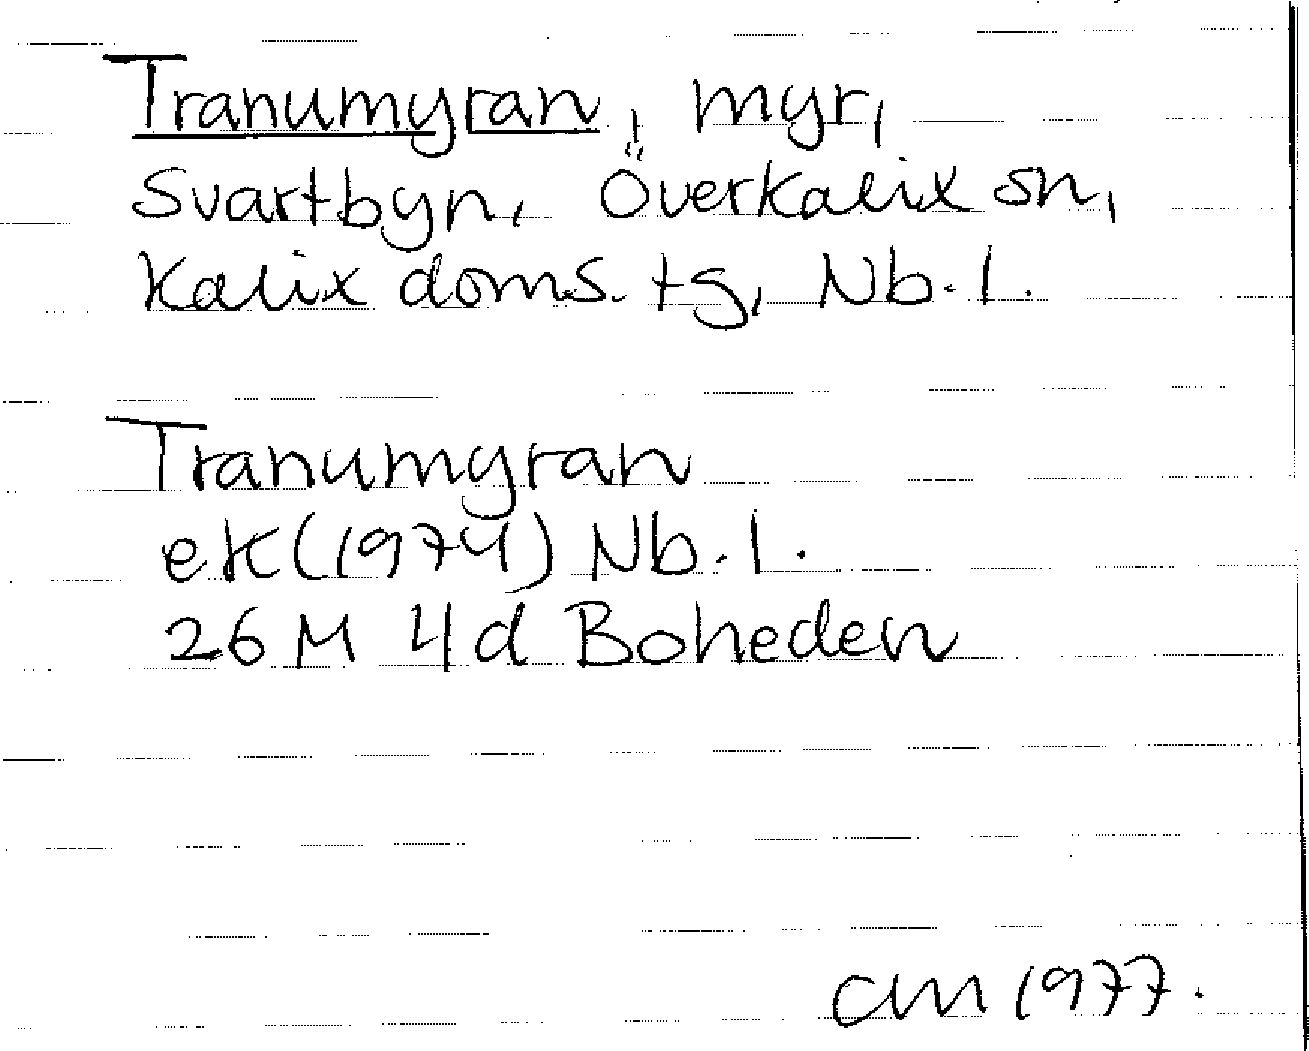 Tranumyran, myr,
Svartbyn, Överkalix sn,
Kalix doms. tg, Nb. l.
Tranumyran
ek (1974) Nb. l.
26 M 4d Boheden
CM 1977.